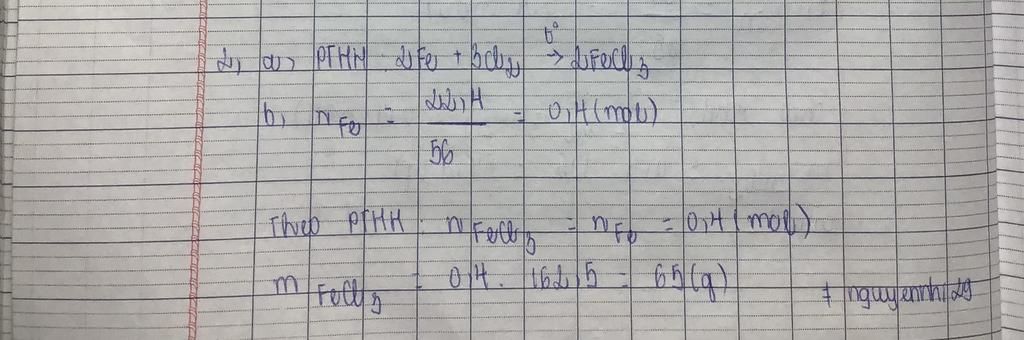 2, a, PTHH 2Fe + 3Cl₂ →(t°) 2FeCl₃
b, n_Fe = 22,4/56 = 0,4 (mol)
Theo PTHH : n_FeCl₃ = n_Fe = 0,4 (mol)
m_FeCl₃ = 0,4 . 162,5 = 65 (g)